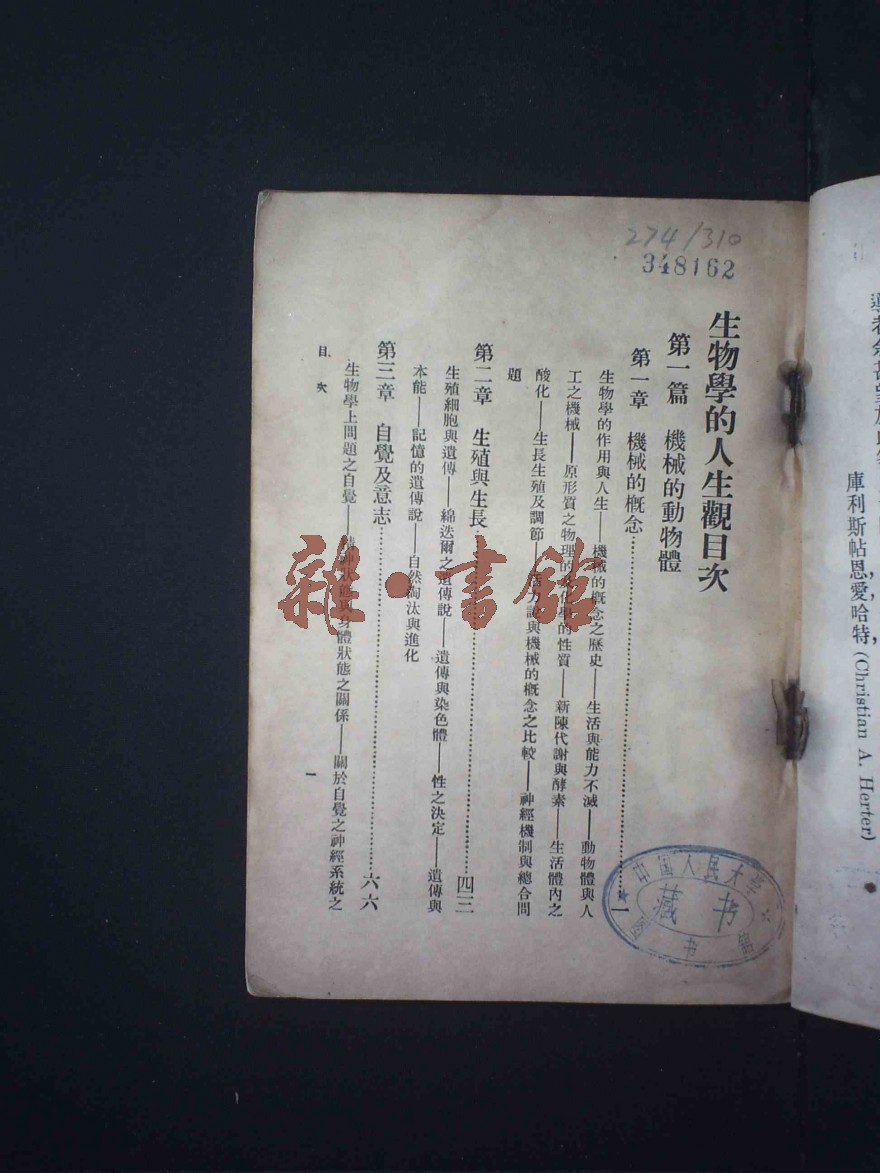 274/310
348162
生物學的人生觀目次
第一篇 機械的動物體
第一章 機械的概念……一
生物學的作用與人生——機械的概念之歷史——生活與能力不滅——動物體與人
工之機械——原形質之物理的及化學的性質——新陳代謝與酵素——生活體內之
酸化——生長生殖及調節——活力說與機械的概念之比較——神經機制與總合問
題
第二章 生殖與生長……四三
生殖細胞與遺傳——綿迭爾之遺傳說——遺傳與染色體——性之決定——遺傳與
本能——記憶的遺傳說——自然淘汰與進化
第三章 自覺及意志……六六
生物學上問題之自覺——精神狀態與身體狀態之關係——關於自覺之神經系統之
目次
一
庫利斯帖恩,愛,哈特 (Christian A. Herter)
中国人民大学
藏书
雜·書館